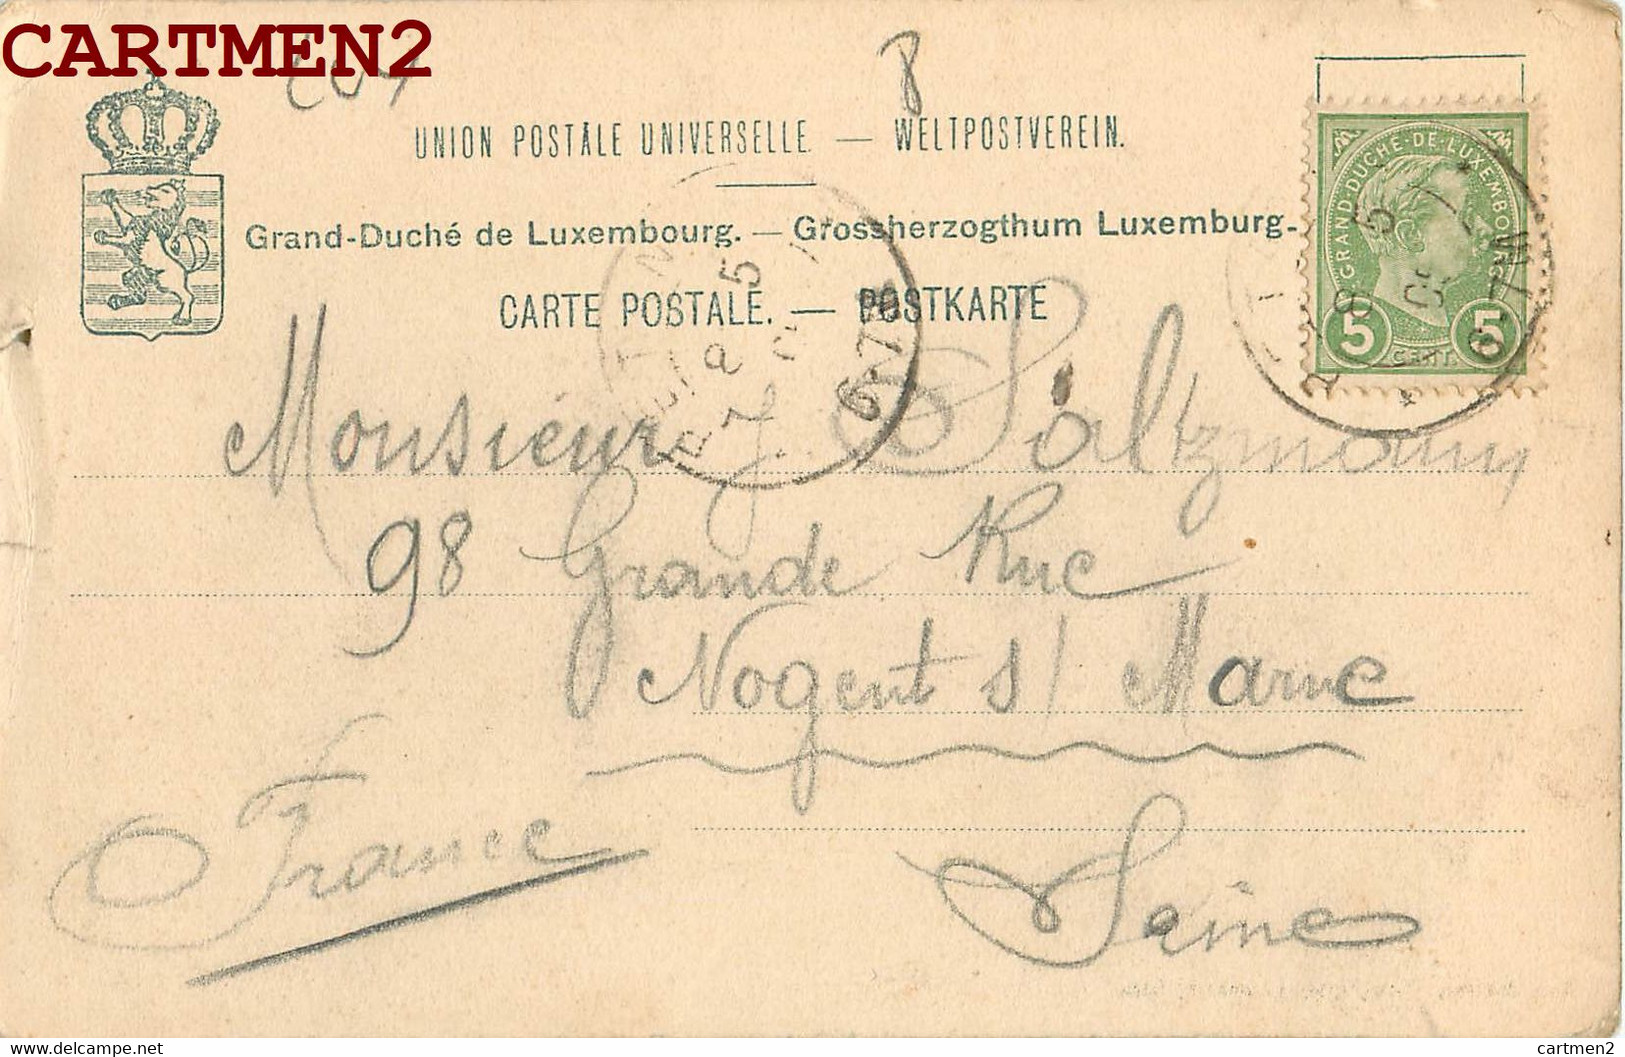 CARTMEN2
8
UNION POSTALE UNIVERSELLE. — WELTPOSTVEREIN.
Grand-Duché de Luxembourg. — Grossherzogthum Luxemburg.
CARTE POSTALE. — POSTKARTE
GRAND-DUCHÉ-DE-LUXEMBOURG
5 CENT. 5
5
6-7
5
6-7
Monsieur J. Saltzmann
98 Grande Rue
Nogent s/ Marne
Seine
France
delcampe.net
cartmen2